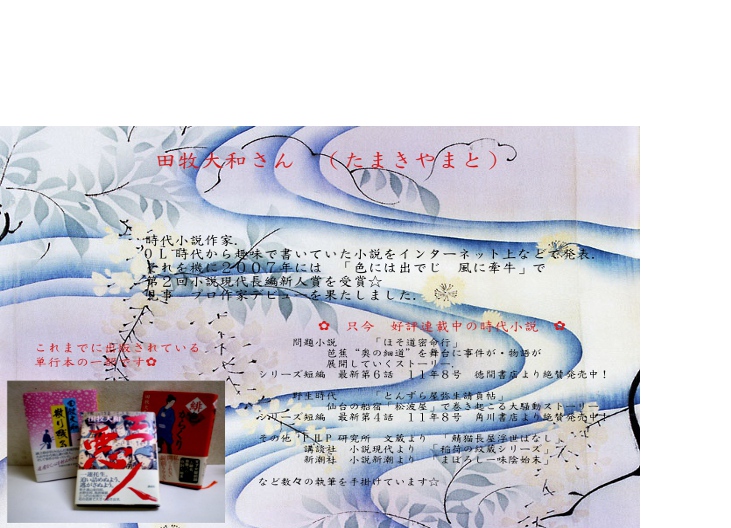 田牧大和さん　（たまきやまと）
時代小説作家．
ＯＬ時代から趣味で書いていた小説をインターネット上などで発表．
それを機に２００７年には　「色には出でじ　風に牽牛」で
第２回小説現代長編新人賞を受賞☆
見事　プロ作家デビューを果たしました．
✿　只今　好評連載中の時代小説　✿
問題小説　　「ほそ道密命行」
芭蕉“奥の細道”を舞台に事件が・物語が
展開していくストーリー．
シリーズ短編　最新第６話　１１年８号　徳間書店より絶賛発売中！
野生時代　　「とんずら屋弥生請負帖」
仙台の船宿　松波屋」で巻き起こる大騒動ストーリー
シリーズ短編　最新第４話　１１年８号　角川書店より絶賛発売中！
その他　ＰＨＰ研究所　文蔵より　　鯖猫長屋浮世ばなし
講談社　小説現代より　「稲荷の紋蔵シリーズ」
新潮社　小説新潮より　　まぼろし一味陰始末
など数々の執筆を手掛けています☆
これまでに出版されている
単行本の一部です✿